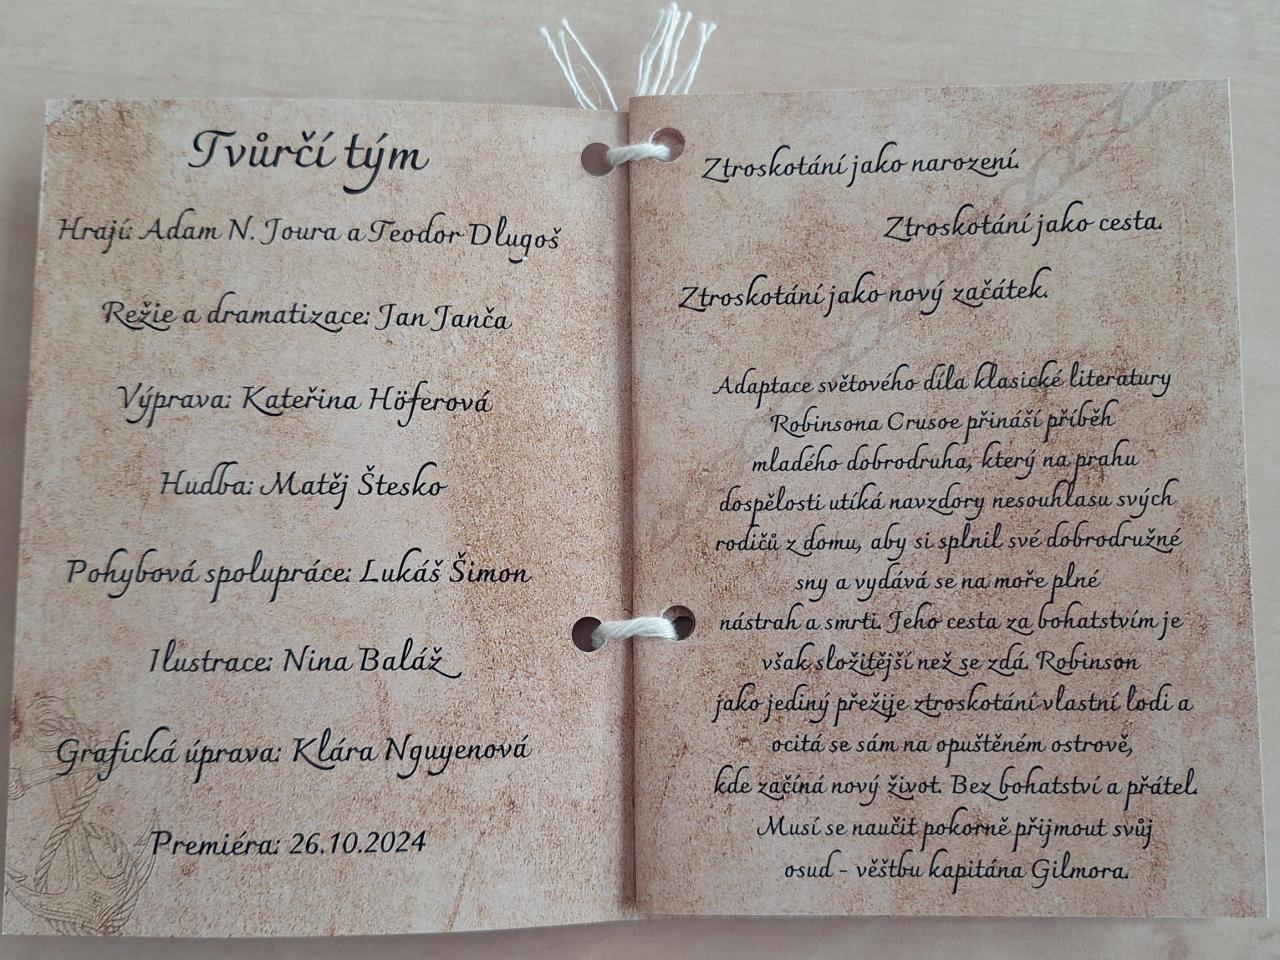 Tvůrčí tým
Hrají: Adam N. Joura a Teodor Dlugoš
Režie a dramatizace: Jan Janča
Výprava: Kateřina Höferová
Hudba: Matěj Štesko
Pohybová spolupráce: Lukáš Šimon
Ilustrace: Nina Baláž
Grafická úprava: Klára Nguyenová
Premiéra: 26.10.2024
Ztroskotání jako narození.
Ztroskotání jako cesta.
Ztroskotání jako nový začátek.
Adaptace světového díla klasické literatury
Robinsona Crusoe přináší příběh
mladého dobrodruha, který na prahu
dospělosti utíká navzdory nesouhlasu svých
rodičů z domu, aby si splnil své dobrodružné
sny a vydává se na moře plné
nástrah a smrti. Jeho cesta za bohatstvím je
však složitější než se zdá. Robinson
jako jediný přežije ztroskotání vlastní lodi a
ocitá se sám na opuštěném ostrově,
kde začíná nový život. Bez bohatství a přátel.
Musí se naučit pokorně přijmout svůj
osud - věštbu kapitána Gilmora.